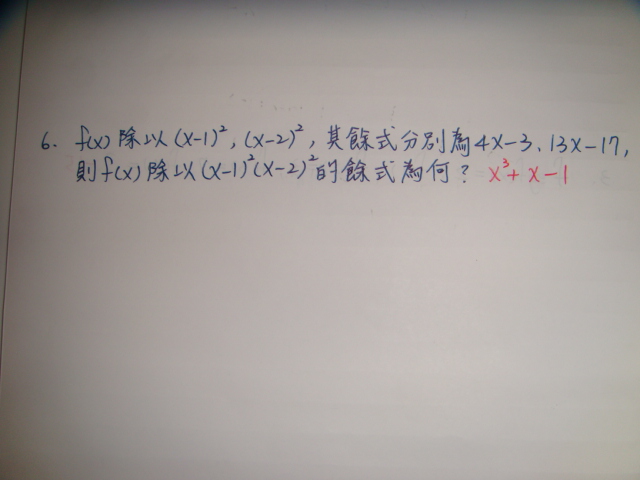 6. f(x)除以(x-1)², (x-2)², 其餘式分別為4x-3、13x-17,
則f(x)除以(x-1)²(x-2)²的餘式為何? x³+x-1